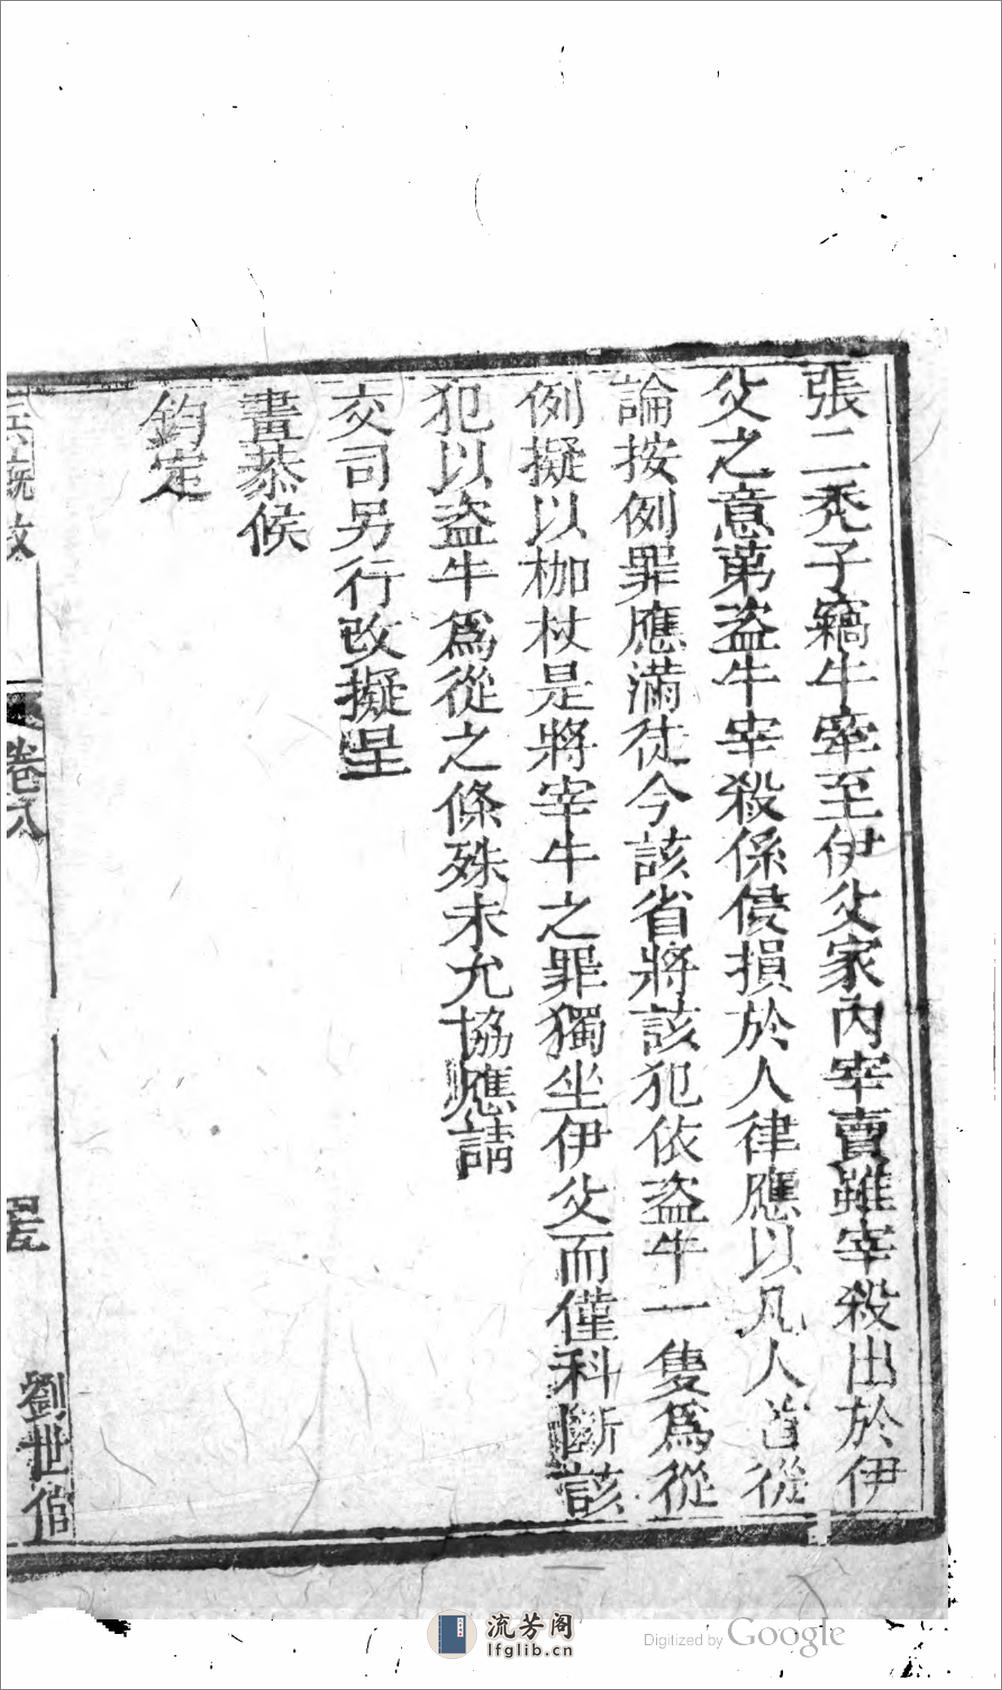 張二秃子竊牛牽至伊父家內宰賣雖宰殺出於伊
父之意第盗牛宰殺係侵損於人律應以凡人首從
論按例罪應滿徒今該省將該犯依盗牛一隻爲從
例擬以枷杖是將宰牛之罪獨坐伊父而僅科斷該
犯以盗牛爲從之條殊未允協應請
交司另行改擬呈
畫恭候
鈞定
卷八
劉世倌
流芳阁
lfglib.cn
Digitized by Google